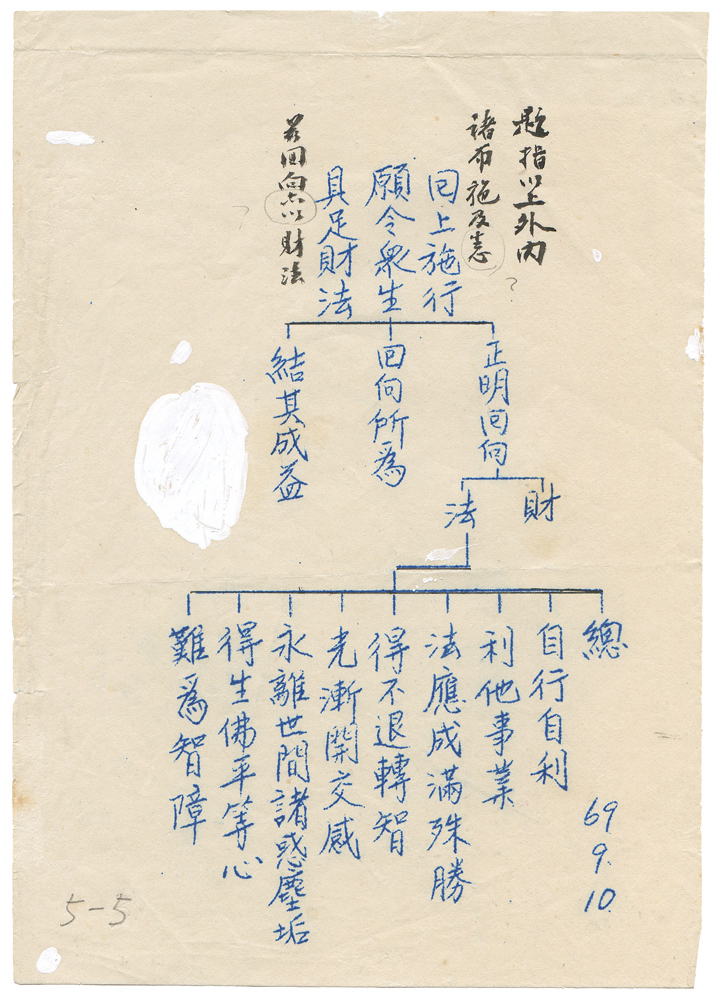 是指以上外內
諸布施及悲
回上施行
願令衆生
具足財法
若回向六以財法
正明回向
回向所為
結其成益
財
法
總
自行自利
利他事業
法應成滿殊勝
得不退轉智
光漸開交感
永離世間諸惑塵垢
得生佛平等心
難為智障
69
9.
10.
5-5